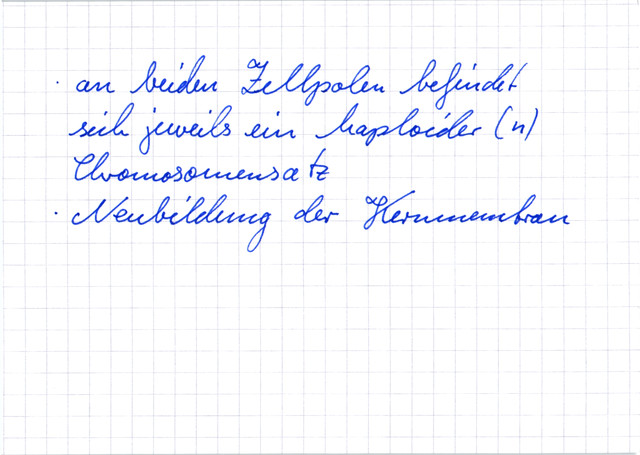 · an beiden Zellpolen befindet
sich jeweils ein haploider (n)
Chromosomensatz
· Neubildung der Kernmembran